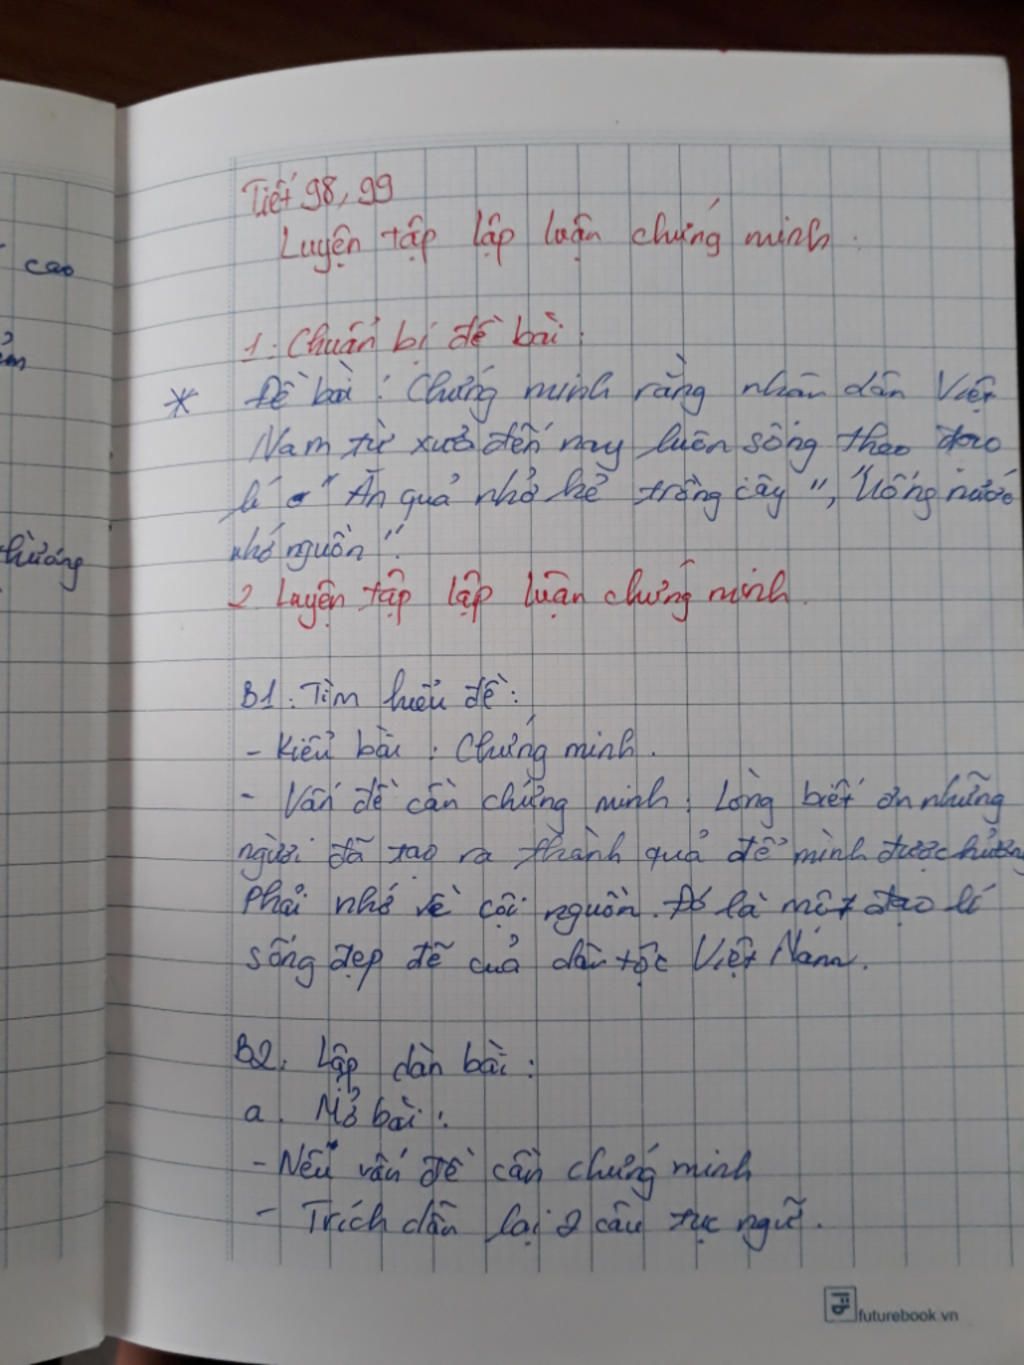 cao
Tiết 98, 99
Luyện tập lập luận chứng minh.
1. Chuẩn bị đề bài:
* Đề bài: Chứng minh rằng nhân dân Việt
Nam từ xưa đến nay luôn sống theo đạo
lí "Ăn quả nhớ kẻ trồng cây", "Uống nước
nhớ nguồn".
2. Luyện tập lập luận chứng minh.
B1: Tìm hiểu đề:
- Kiểu bài: Chứng minh.
- Vấn đề cần chứng minh: Lòng biết ơn những
người đã tạo ra thành quả để mình được hưởng
Phải nhớ về cội nguồn. Đó là một đạo lí
sống đẹp đẽ của dân tộc Việt Nam.
B2. Lập dàn bài:
a. Mở bài:
- Nêu vấn đề cần chứng minh
- Trích dẫn lại 2 câu tục ngữ.
futurebook.vn